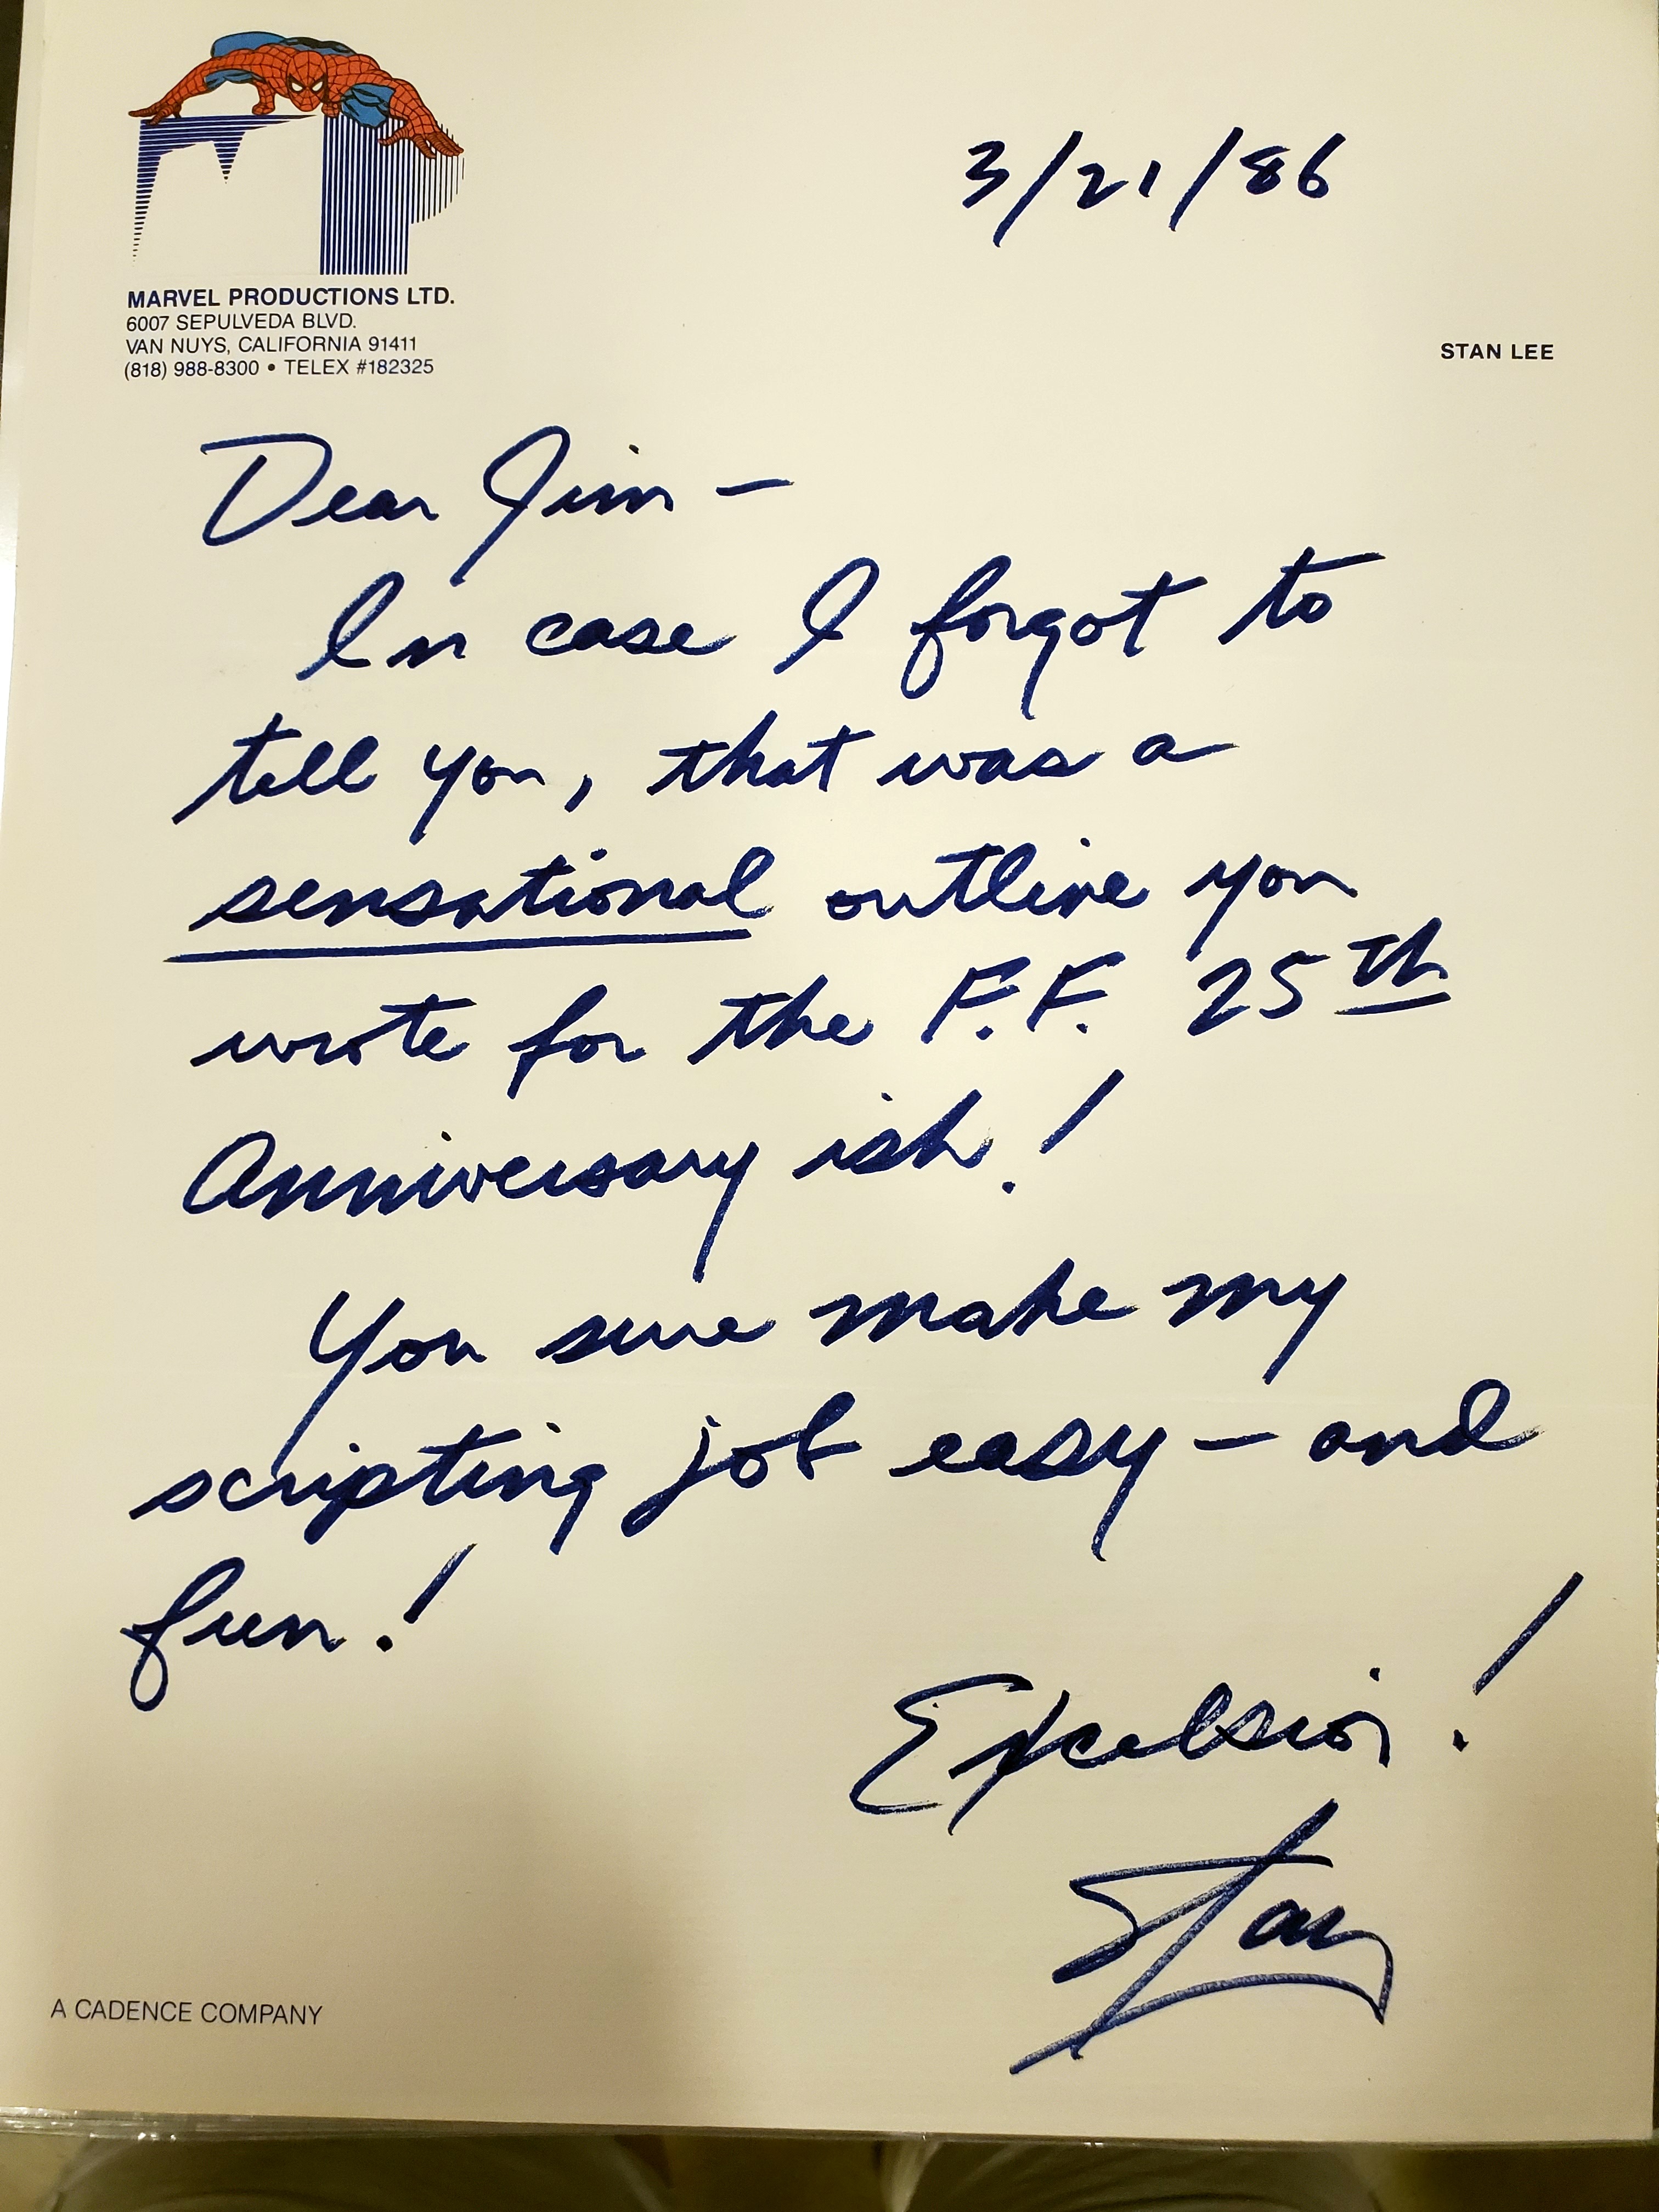 3/21/86
MARVEL PRODUCTIONS LTD.
6007 SEPULVEDA BLVD.
VAN NUYS, CALIFORNIA 91411
(818) 988-8300 • TELEX #182325
STAN LEE
Dear Jim –
In case I forgot to
tell you, that was a
sensational outline you
wrote for the F.F. 25th
Anniversary ish!
You sure make my
scripting job easy – and
fun!
Excelsior!
Stan
A CADENCE COMPANY